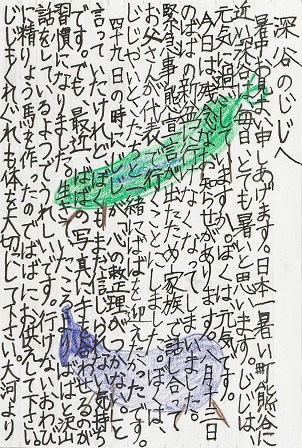 深谷のじじへ
暑中お見舞い申しあげます。日本一暑い町熊谷に
近い深谷も毎日とても暑いと思います。じじは
元気に過ごしていますか。ぼくは元気です。
今日は残念なお知らせがあります。八月十三日
のばばの新盆に行けなくなってしまいました。
緊急事態宣言が出たため、家族で話し合って
お父さんが代表で行くことにしました。ぼくは、
じじやいとこたちと一緒にばばを迎えたかったです。
四十九日の時に、じじが「心の整理がつかない。」と
言っていたけれど、ぼくもまだ信じられない気持ち
です。でも、最近、ばばの写真に手を合わせるのが
習慣になりました。生きていたころよりばばと沢山
話をしているようでうれしいです。行けないおわび
に精りょう馬を作ったのでばばにお供えして下さい。
じじもくれぐれも体を大切にして下さい。大河より